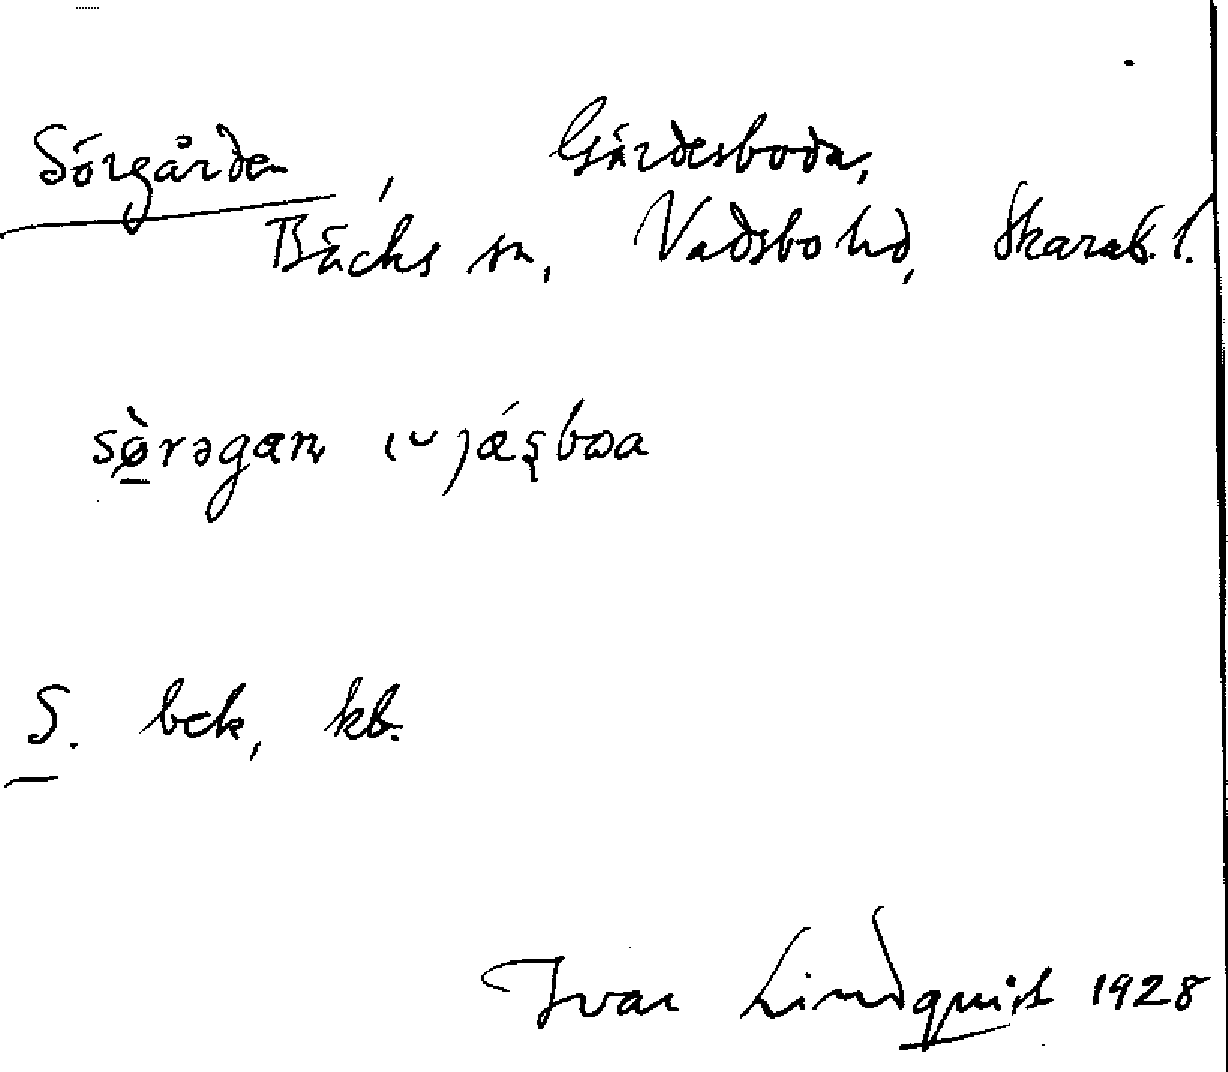 Sörgården, Gärdesboda,
Bäcks sn, Vadsbo hd, Skarab. l.
sø̀rəgaɳ ıᵕ jǽʂbωa
S. bek, kb.
Ivar Lindquist 1928